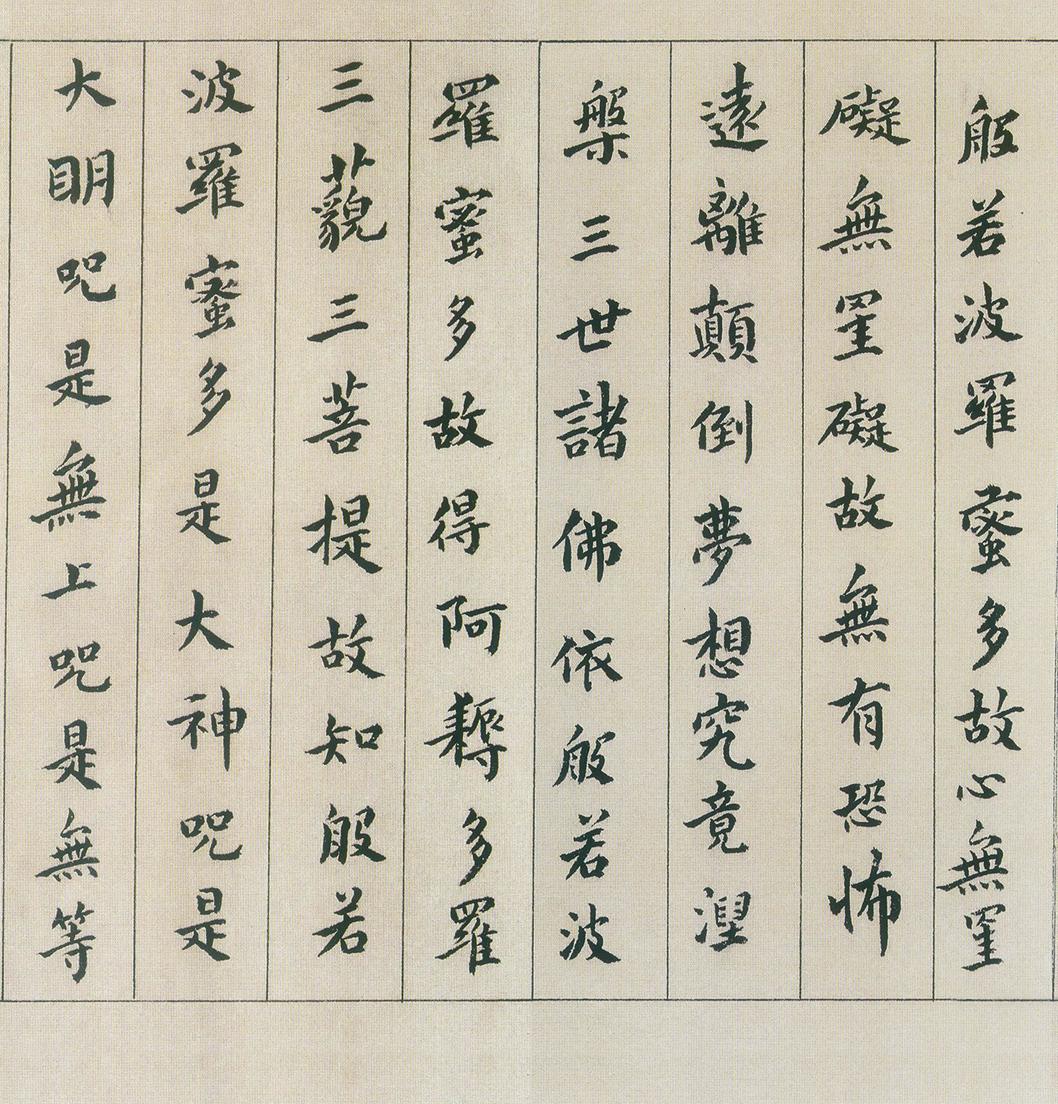 般若波羅蜜多故心無罣
礙無罣礙故無有恐怖
遠離顛倒夢想究竟涅
槃三世諸佛依般若波
羅蜜多故得阿耨多羅
三藐三菩提故知般若
波羅蜜多是大神咒是
大明咒是無上咒是無等